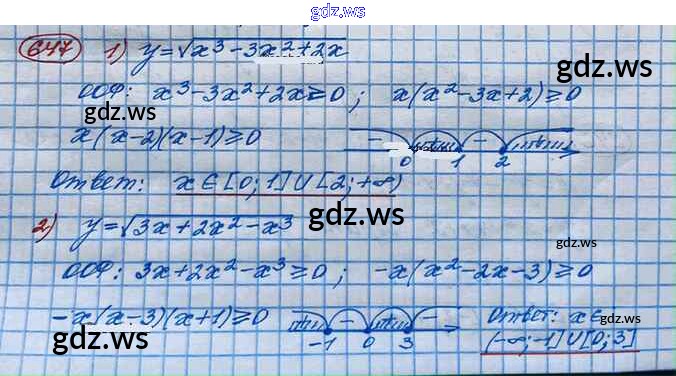 gdz.ws
647 1) y=√x³-3x²+2x
ООФ: x³-3x²+2x≥0; x(x²-3x+2)≥0
gdz.ws
gdz.ws
x(x-2)(x-1)≥0
- + - +
0 1 2
Ответ: x∈[0;1]∪[2;+∞)
gdz.ws
2) y=√3x+2x²-x³
gdz.ws
ООФ: 3x+2x²-x³≥0; -x(x²-2x-3)≥0
-x(x-3)(x+1)≥0
+ - + -
-1 0 3
Ответ: x∈
(-∞;-1]∪[0;3]
gdz.ws
gdz.ws
gdz.ws